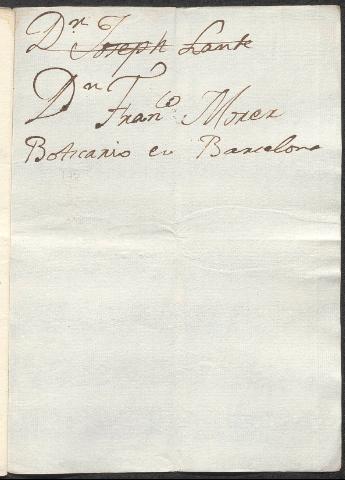 Dn Joseph Lante
Dn Franco Morer
Boticario en Barcelona